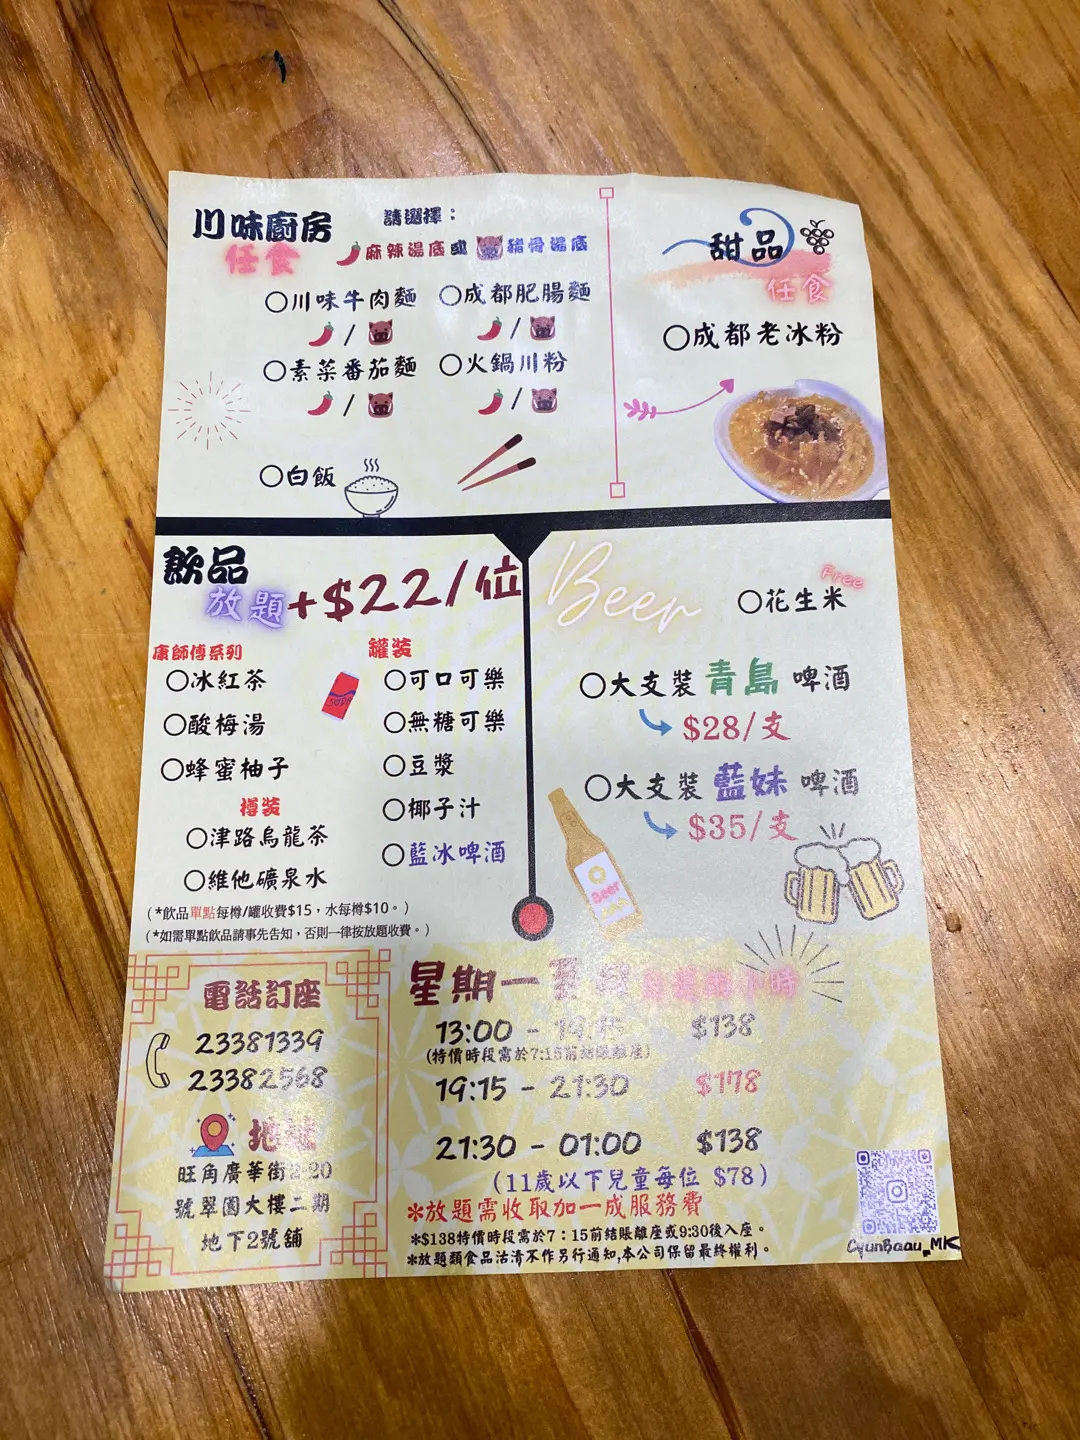 川味廚房
任食
請選擇：
麻辣湯底或豬骨湯底
○川味牛肉麵 ○成都肥腸麵
/ /
○素菜番茄麵 ○火鍋川粉
/ /
○白飯
甜品
任食
○成都老冰粉
飲品
放題+$22/位
康師傅系列
○冰紅茶
○酸梅湯
○蜂蜜柚子
樽裝
○津路烏龍茶
○維他礦泉水
罐裝
SODA
○可口可樂
○無糖可樂
○豆漿
○椰子汁
○藍冰啤酒
(*飲品單點每樽/罐收費$15，水每樽$10。)
(*如需單點飲品請事先告知，否則一律按放題收費。)
Beer
Free
○花生米
○大支裝青島啤酒
$28/支
○大支裝藍妹啤酒
$35/支
Beer
電話訂座
23381339
23382568
地址
旺角廣華街2-20
號翠園大樓二期
地下2號舖
星期一至 小時
13:00 - 19:15 $138
(特價時段需於7:15前結賬離座)
19:15 - 21:30 $178
21:30 - 01:00 $138
(11歲以下兒童每位 $78)
*放題需收取加一成服務費
*$138特價時段需於7：15前結賬離座或9:30後入座。
*放題類食品沽清不作另行通知,本公司保留最終權利。
CyunBaau_MK